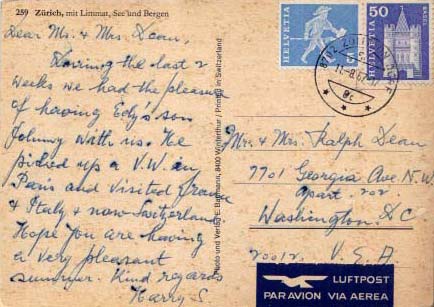 259 Zürich, mit Limmat, See und Bergen
Dear Mr. & Mrs. Dean,
During the last 2
weeks we had the pleasure
of having Edy's son
Johnny with us. He
picked up a V.W. in
Paris and visited France
& Italy & now Switzerland.
Hope you are having
a very pleasant
summer. Kind regards
Harry S
Photo und Verlag E. Baumann, 8400 Winterthur / Printed in Switzerland
HELVETIA
50
HELVETIA
BASEL
8702 ZOLLIKON
Mr. & Mrs. Ralph Dean
7701 Georgia Ave N.W.
Apart. 202
Washington D.C.
20012. U.S.A.
LUFTPOST
PAR AVION VIA AEREA